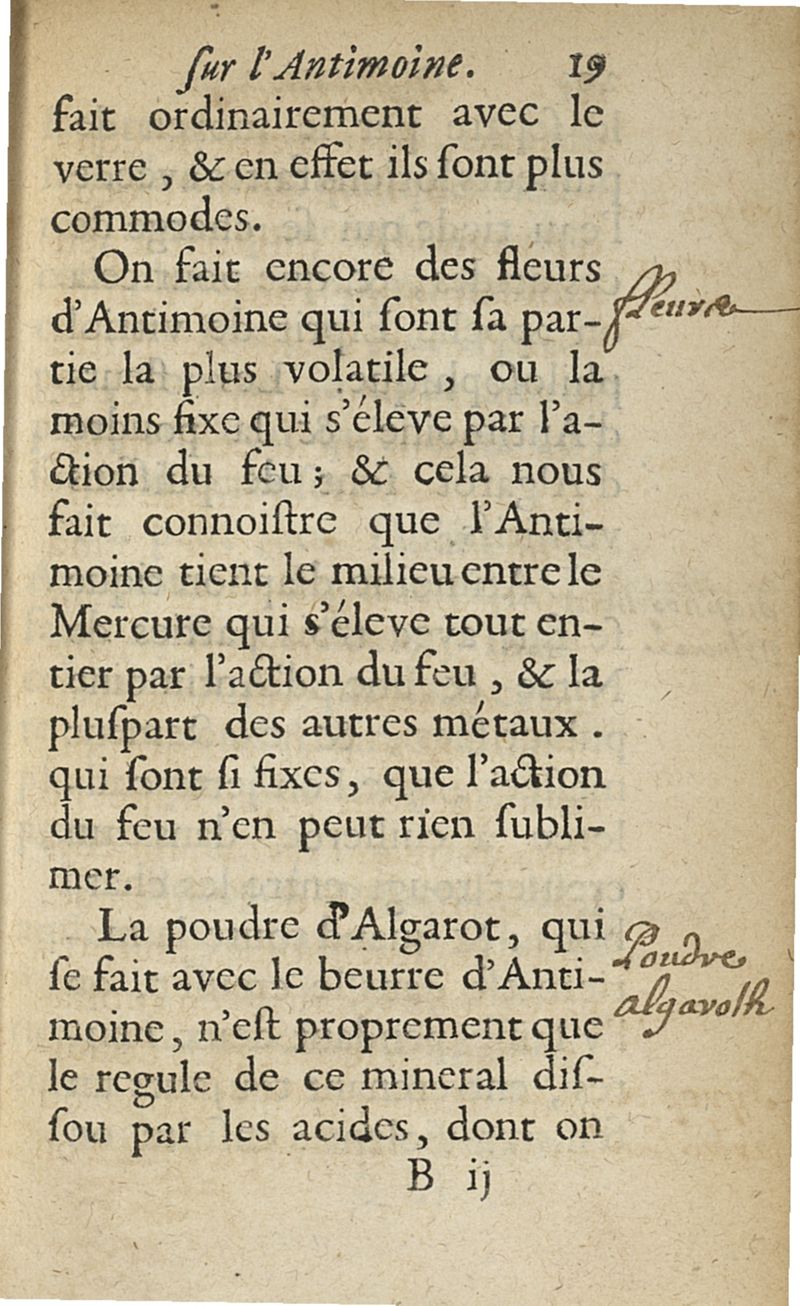 ſur l'Antimoine. 19
fait ordinairement avec le
verre , & en effet ils ſont plus
commodes.
On fait encore des fleurs
d'Antimoine qui ſont ſa par-
tie la plus volatile , ou la
moins fixe qui s'éleve par l'a-
ction du feu ; & cela nous
fait connoiſtre que l'Anti-
moine tient le milieu entre le
Mercure qui s'éleve tout en-
tier par l'action du feu , & la
pluſpart des autres métaux .
qui ſont ſi fixes, que l'action
du feu n'en peut rien ſubli-
mer.
La poudre d'Algarot, qui
ſe fait avec le beurre d'Anti-
moine, n'eſt proprement que
le regule de ce mineral diſ-
ſou par les acides, dont on
B ij
Poudre
algaroth